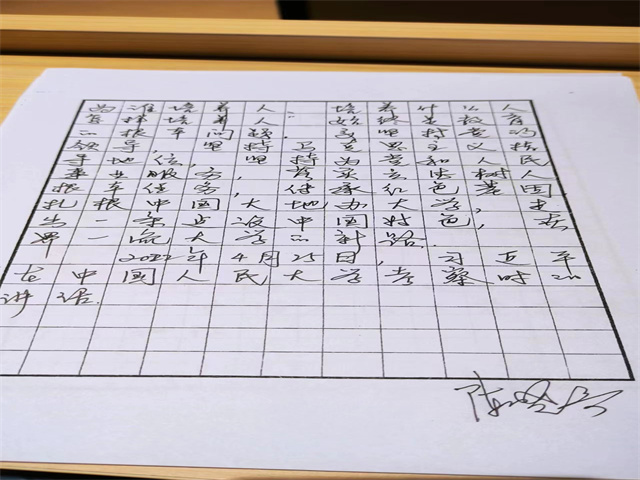 为谁培养人、培养什么人
怎样培养人始终是教育
的根本问题.要坚持党的
领导,坚持马克思主义指
导地位,坚持为党和人民
事业服务,落实立德树人
根本任务,传承红色基因
扎根中国大地办大学,走
出一条建设中国特色,世
界一流大学的新路.
2022年4月25日,习近平
在中国人民大学考察时的
讲话.